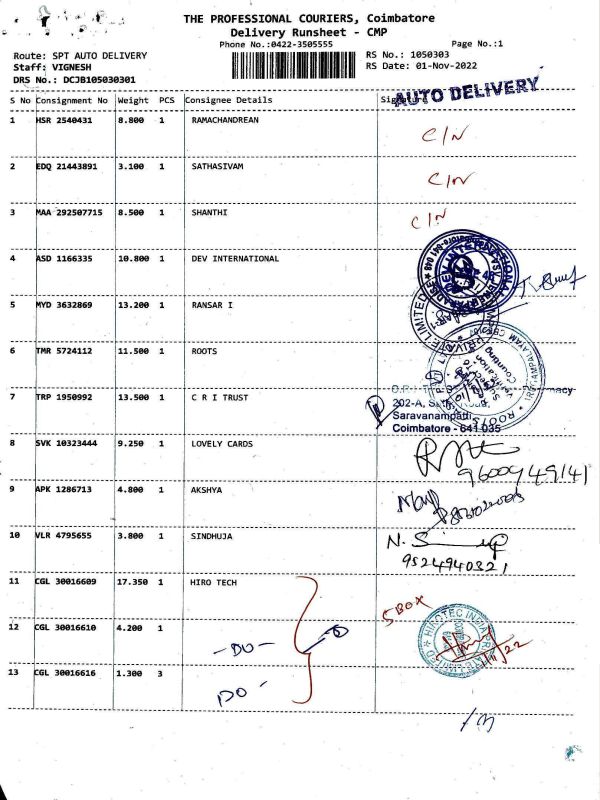 THE PROFESSIONAL COURIERS, Coimbatore
Delivery Runsheet - CMP
Phone No.:0422-3505555
Page No.:1
Route: SPT AUTO DELIVERY
RS No.: 1050303
Staff: VIGNESH
RS Date: 01-Nov-2022
DRS No.: DCJB105030301
AUTO DELIVERY
S No Consignment No Weight PCS Consignee Details
1 HSR 2540431 8.800 1 RAMACHANDREAN C/N
2 EDQ 21443891 3.100 1 SATHASIVAM C/N
3 MAA 292507715 8.500 1 SHANTHI C/N
4 ASD 1166335 10.800 1 DEV INTERNATIONAL
DEV INTERNATIONAL
5 MYD 3632869 13.200 1 RANSAR I
PRIVATE LIMITED
6 TMR 5724112 11.500 1 ROOTS
ROOTS
7 TRP 1950992 13.500 1 C R I TRUST
Saravanampatti
Coimbatore - 641 035
8 SVK 10323444 9.250 1 LOVELY CARDS
9600949141
9 APK 1286713 4.800 1 AKSHYA
10 VLR 4795655 3.800 1 SINDHUJA
9524940321
11 CGL 30016609 17.350 1 HIRO TECH
5 BOX
12 CGL 30016610 4.200 1 - DO -
13 CGL 30016616 1.300 3 DO -